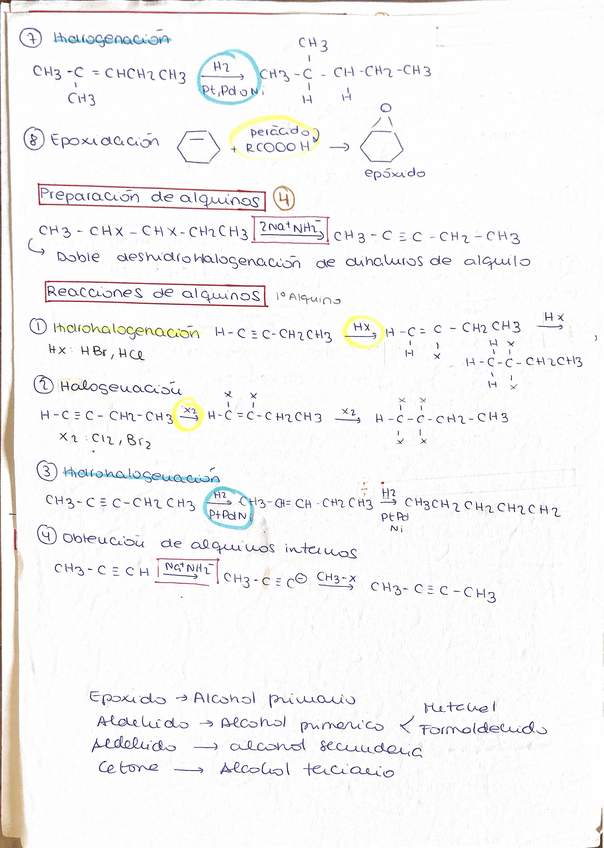 ⑦ Hidrogenación
CH3
CH3 - C = CHCH2CH3 H2 Pt, Pd o Ni CH3 - C - CH - CH2 - CH3
CH3 H H
O
⑧ Epoxidación + perácido RCOOOH →
epóxido
Preparación de alquinos ④
CH3 - CHX - CHX - CH2CH3 2Na+NH2- CH3 - C ≡ C - CH2 - CH3
Doble deshidrohalogenación de dihaluros de alquilo
Reacciones de alquinos 1º Alquino
① Hidrohalogenación H - C ≡ C - CH2CH3 HX H - C = C - CH2CH3 HX
H X
HX : HBr, HCl
H X
H - C - C - CH2CH3
H X
② Halogenación
X X X X
H - C ≡ C - CH2 - CH3 X2 H - C = C - CH2CH3 X2 H - C - C - CH2 - CH3
X X
X2 : Cl2, Br2
③ Hidrohalogenación
CH3 - C ≡ C - CH2CH3 H2 Pt Pd Ni CH3 - CH = CH - CH2CH3 H2 Pt Pd Ni CH3CH2CH2CH2CH2
④ Obtención de alquinos internos
CH3 - C ≡ CH Na+NH2- CH3 - C ≡ C⊖ CH3-X CH3 - C ≡ C - CH3
Epoxido → Alcohol primario
Metchel
Aldehido → Alcohol pumerico < Formoldehido
Aldehido → alcohol secunderia
Cetone → Alcohol terciario